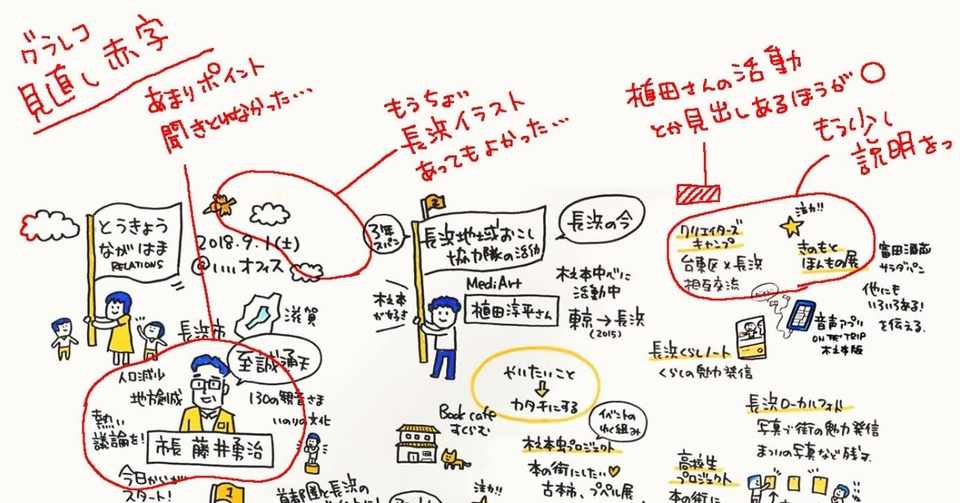 グラレコ
見直し赤字
あまりポイント
聞きとれなかった…
もうちょい
長浜イラスト
あってもよかった…
植田さんの活動
とか見出しあるほうが〇
もう少し
説明を
とうきょう
ながはま
RELATIONS
2018.9.1(土)
@いいオフィス
3年
スパン
長浜地域おこし
協力隊の活動
MediArt
植田淳平さん
木之本
が好き
長浜の今
木之本中心に
活動中
東京→長浜
(2015)
クリエイターズ
キャンプ
台東区×長浜
相互交流
活か!!
きのもと
ほんもの展
富田酒造
サラダパン
他にも
いろいろある!
を伝える.
音声アプリ
ON THE TRIP
木之本版
長浜くらしノート
くらしの魅力発信
長浜市
滋賀
人口減少
地方創成
至誠通天
130の観音さま
いのりの文化
熱い
議論を!
市長 藤井勇治
今日から
スタート!
首都圏と長浜の
やりたいこと
カタチにする
Book cafe
すくらむ
イベントの
わく組み
木之本虫プロジェクト
本の街にした…
古本市、ラベル展
活か!!
長浜ローカルフォト
写真で街の魅力発信
まつりの写真など残す.
高校生
プロジェクト
本の街に